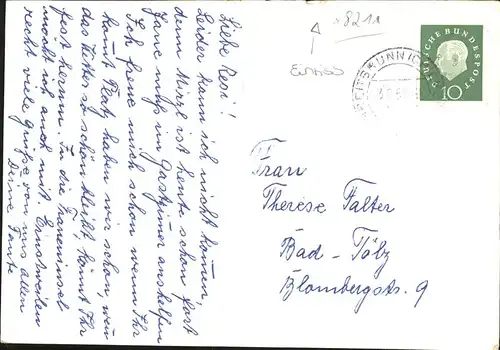 Liebe Resi!
Leider kann ich nicht kommen,
denn Minzl ist heute schon fort
Jane muß im Gastzimer aushelfen
Ich freue mich schon wenn Ihr
kommt Platz haben wir schon, wen
das Wetter so schön bleibt, könnt Ihr
fest herum. In die Fraueninsel
möcht ich auch mit. Einstweilen
recht viele Grüße von uns allen
Deine Tante
8211
DEUTSCHE BUNDESPOST
10
Frau
Therese Falter
Bad-Tölz
Blombergstr. 9